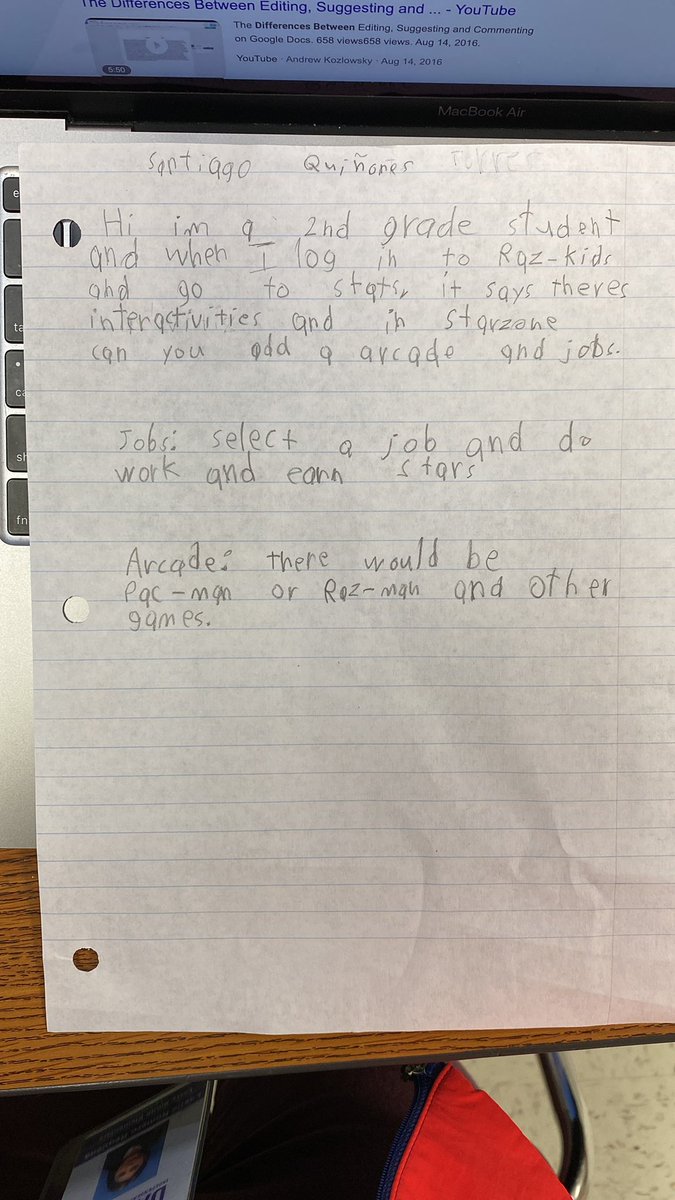 The Differences Between Editing, Suggesting and ... - YouTube
The Differences Between Editing, Suggesting and Commenting
on Google Docs. 658 views658 views. Aug 14, 2016.
5:50
YouTube · Andrew Kozlowsky · Aug 14, 2016
MacBook Air
Santiago Quiñones Torres
Hi im a 2nd grade student
and when I log in to Raz-kids
and go to stats, it says theres
interactivities and in starzone
can you add a arcade and jobs.
Jobs: select a job and do
work and earn stars
Arcade: there would be
Pac-man or Raz-man and other
games.
fn